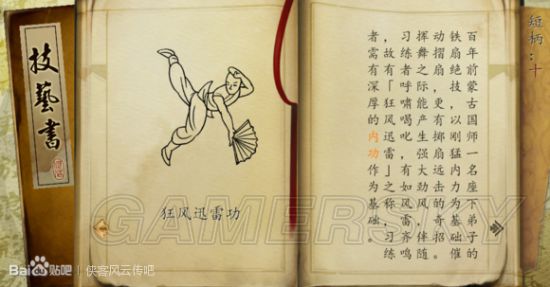 短柄：十
百年前蒙古国师一名座下弟子的
铁扇绝技，以刚猛内力为基础催
动摺扇，更有掷扇远击的奇招。
挥舞之际，能产生强大劲风，伴随
习练者「呼啸喝叱」有如风雷齐鸣
，故有「狂风迅雷」之称。习练
者需有深厚的内功作为基础。
技藝書
狂风迅雷功
GAMERSKY
Bai du 贴吧 | 侠客风云传吧